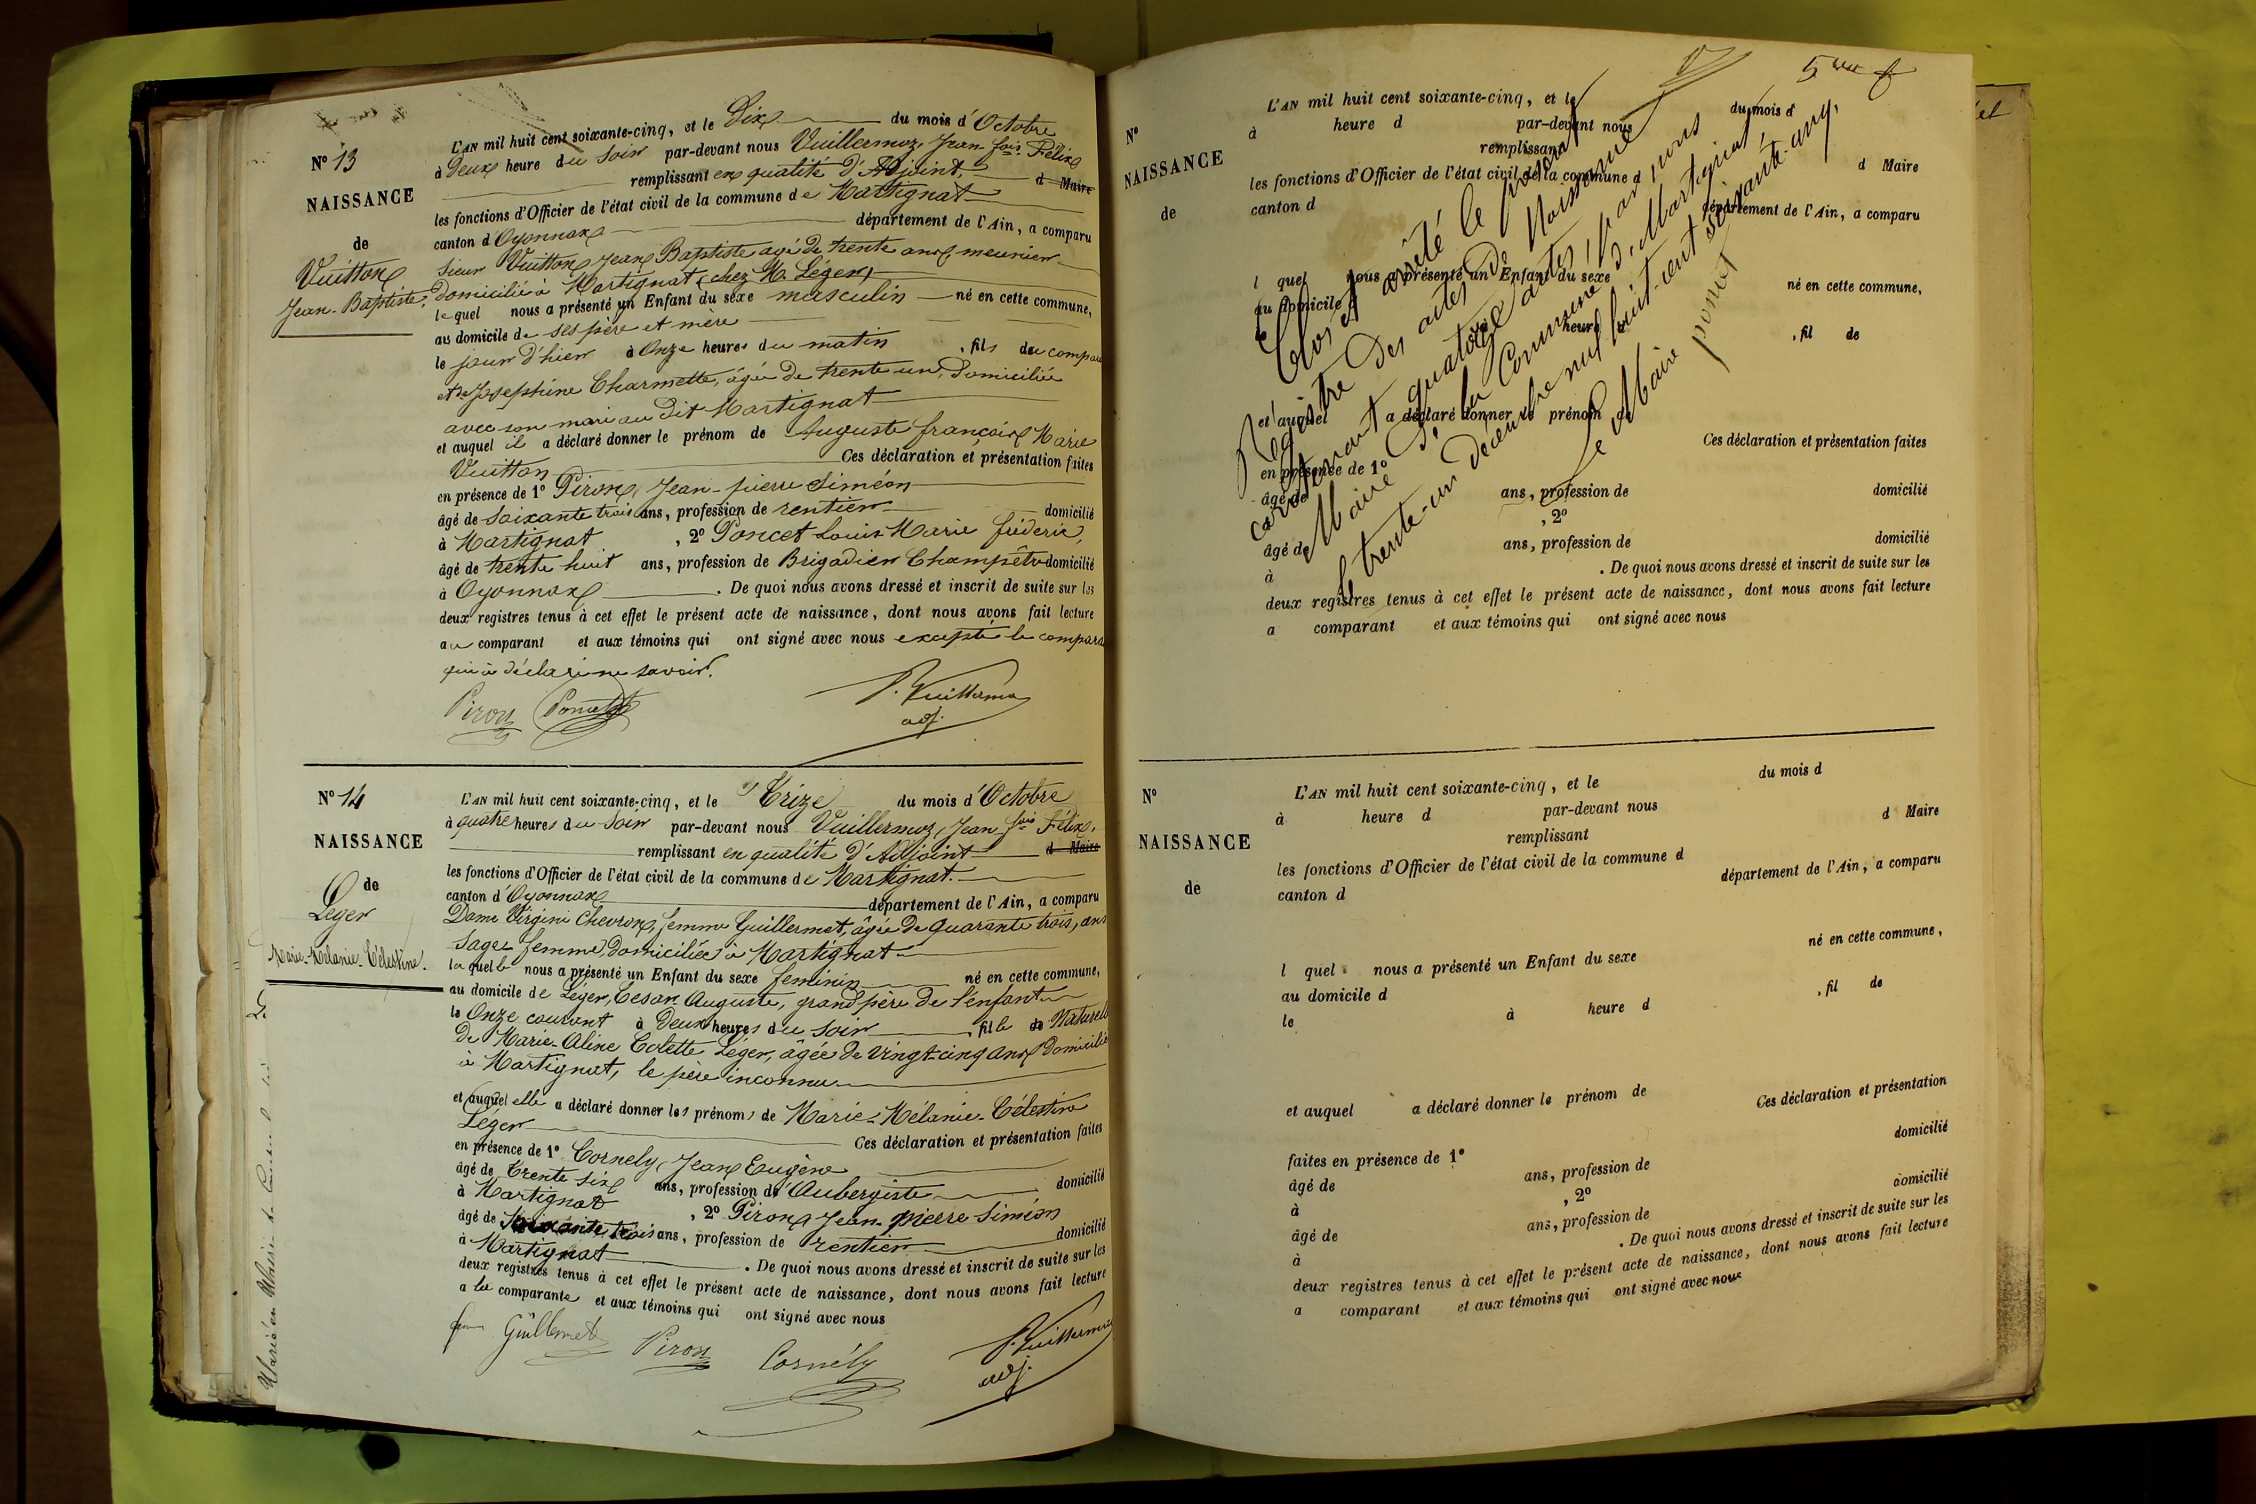 N° 13
NAISSANCE
de
Vuitton
Jean-Baptiste.
L'AN mil huit cent soixante-cinq, et le Dix du mois d'Octobre
à Deux heure du Soir par-devant nous Vuillermoz, Jean fois Félix
remplissant en qualité d'Adjoint. d Maire
les fonctions d'Officier de l'état civil de la commune de Martignat
canton d'Oyonnax département de l'Ain, a comparu
Sieur Vuitton Jean Baptiste agé de trente ans meunier
domicilié à Martignat, chez M. Léger,
lequel nous a présenté un Enfant du sexe masculin né en cette commune,
au domicile de ses père et mère
le jour d'hier à Onze heures du matin , fils du compa
et de Joséphine Charmette, âgée de trente un, Domiciliée
avec son mari au dit Martignat
et auquel il a déclaré donner le prénom de Auguste françois Marie
Vuitton Ces déclaration et présentation faites
en présence de 1° Piron, Jean-pierre Siméon
âgé de soixante trois ans, profession de rentier domicilié
à Martignat , 2° Poncet Louis Marie fréderic,
âgé de trente huit ans, profession de Brigadier Champêtre domicilié
à Oyonnax . De quoi nous avons dressé et inscrit de suite sur les
deux registres tenus à cet effet le présent acte de naissance, dont nous avons fait lecture
au comparant et aux témoins qui ont signé avec nous excepté le compara
qui a déclaré ne savoir.
Piron Poncet P. Vuillermoz
adj.
N° 14
NAISSANCE
de
Leger
Marie-Mélanie-Célestine.
L'AN mil huit cent soixante-cinq, et le Trize du mois d'Octobre
à quatre heures du Soir par-devant nous Vuillermoz, Jean fois Félix,
remplissant en qualité d'Adjoint d Maire
les fonctions d'Officier de l'état civil de la commune de Martignat.
canton d'Oyonnax département de l'Ain, a comparu
Dame Virginie Chevron, femme Guillermet, âgée de quarante trois, ans
Sage femme, domiciliée à Martignat
laquelle nous a présenté un Enfant du sexe feminin né en cette commune,
au domicile de Léger, César Auguste, grand père de l'enfant
le Onze courant à Deux heures du Soir , fille de Naturelle
De Marie-Aline Colette Léger, âgée de vingt-cinq ans Domicilié
à Martignat, le père inconnu
et auquel elle a déclaré donner les prénoms de Marie-Mélanie-Célestine
Léger Ces déclaration et présentation faites
en présence de 1° Cornely, Jean Eugène
âgé de trente six ans, profession d'Aubergiste domicilié
à Martignat , 2° Piron, Jean-pierre Siméon
âgé de soixante trois ans, profession de rentier domicilié
à Martignat . De quoi nous avons dressé et inscrit de suite sur les
deux registres tenus à cet effet le présent acte de naissance, dont nous avons fait lecture
a la comparante et aux témoins qui ont signé avec nous
Guillermet Piron Cornély P. Vuillermoz
adj.
N°
NAISSANCE
de
L'AN mil huit cent soixante-cinq, et le du mois d
à heure d par-devant nous
remplissant d Maire
les fonctions d'Officier de l'état civil de la commune d
canton d département de l'Ain, a comparu
l quel nous a présenté un Enfant du sexe né en cette commune,
au domicile d
le heure , fil de
et auquel a déclaré donner le prénom de
Ces déclaration et présentation faites
en présence de 1°
âgé de ans, profession de domicilié
, 2°
âgé de ans, profession de domicilié
à . De quoi nous avons dressé et inscrit de suite sur les
deux registres tenus à cet effet le présent acte de naissance, dont nous avons fait lecture
a comparant et aux témoins qui ont signé avec nous
Clos et arrêté le présent
Registre Des actes De Naissance
contenant quatorze actes, par nous
Maire De la Commune d. Martignat
le trente-un Décembre mil huit-cent soixante-cinq,
Le Maire
poncet
N°
NAISSANCE
de
L'AN mil huit cent soixante-cinq, et le du mois d
à heure d par-devant nous
remplissant d Maire
les fonctions d'Officier de l'état civil de la commune d
canton d département de l'Ain, a comparu
l quel nous a présenté un Enfant du sexe né en cette commune,
au domicile d
le à heure d , fil de
et auquel a déclaré donner le prénom de
Ces déclaration et présentation
faites en présence de 1°
âgé de ans, profession de domicilié
à , 2°
âgé de ans, profession de domicilié
à . De quoi nous avons dressé et inscrit de suite sur les
deux registres tenus à cet effet le présent acte de naissance, dont nous avons fait lecture
a comparant et aux témoins qui ont signé avec nous